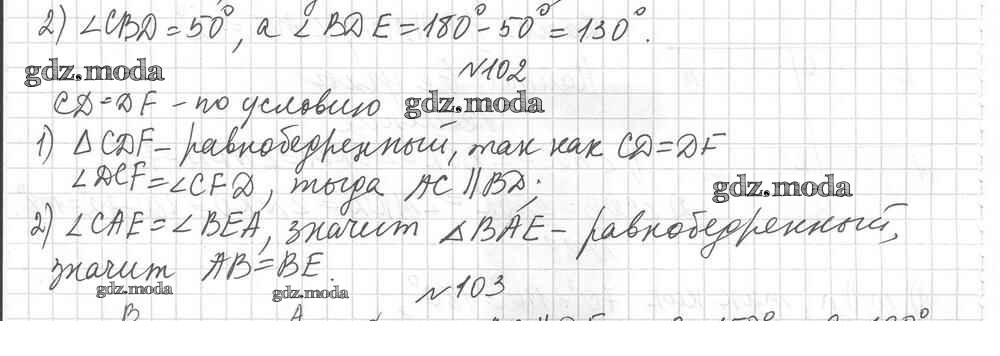 2) ∠CBD = 50°, а ∠BDE = 180° - 50° = 130°.
gdz.moda
№102
CD = DF - по условию gdz.moda
1) △CDF - равнобедренный, так как CD = DF
∠DCF = ∠CFD, тогда AC ∥ BD; gdz.moda
2) ∠CAE = ∠BEA, значит △BAE - равнобедренный,
значит AB = BE.
gdz.moda gdz.moda
№103
B A